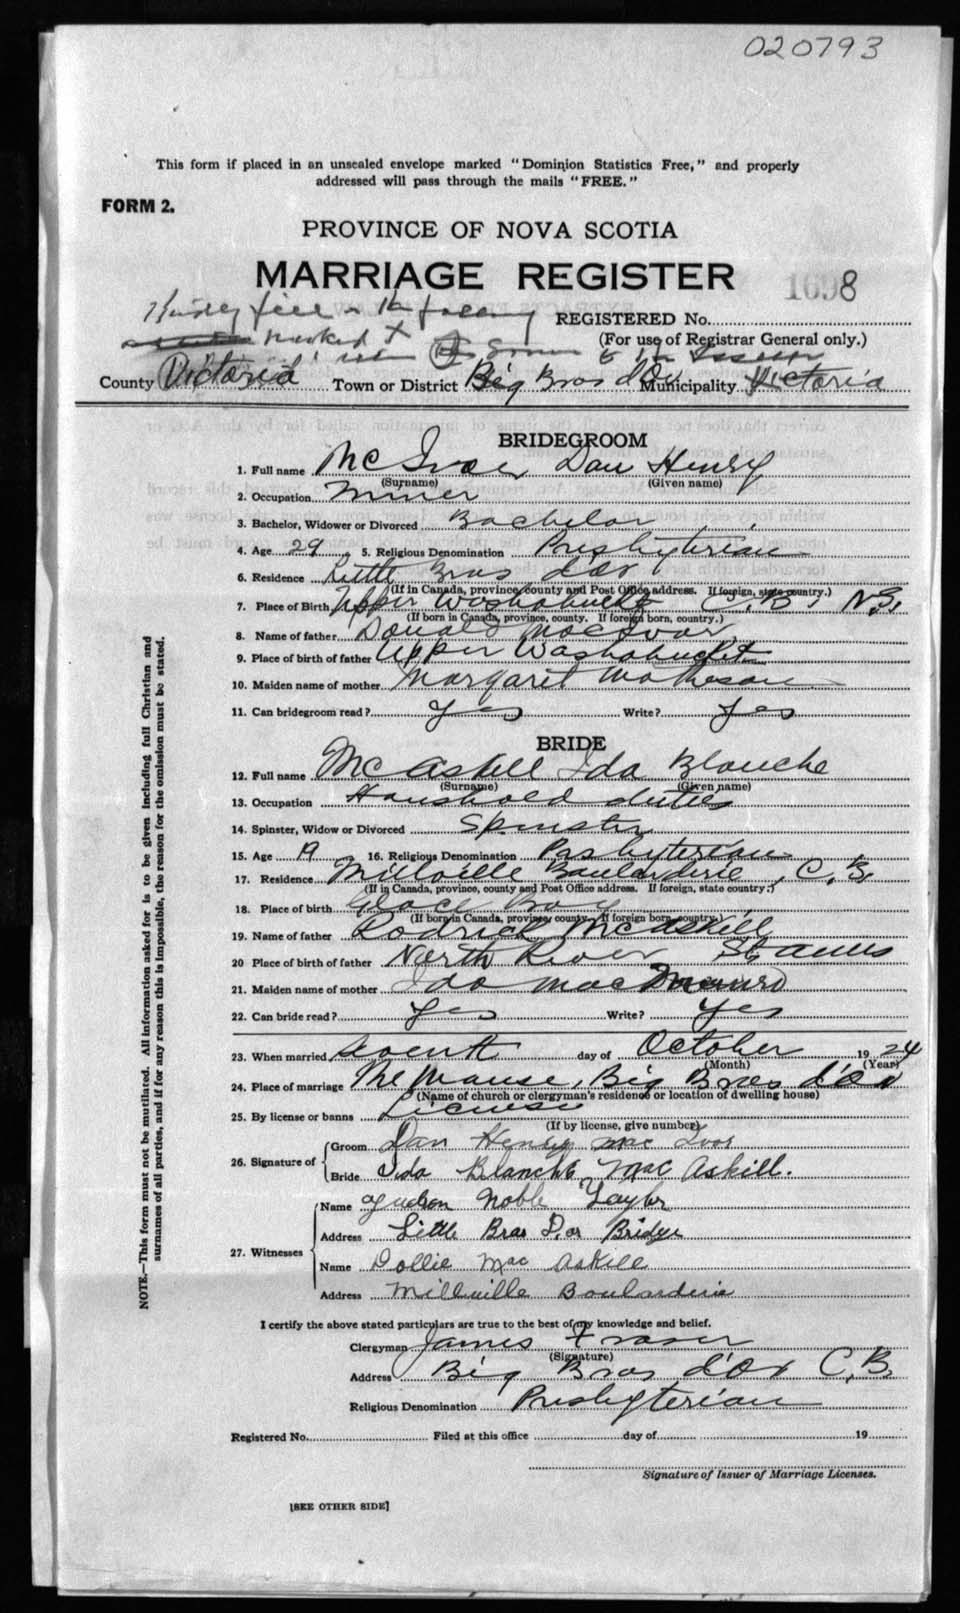 020793
This form if placed in an unsealed envelope marked "Dominion Statistics Free," and properly
addressed will pass through the mails "FREE."
FORM 2.
PROVINCE OF NOVA SCOTIA
MARRIAGE REGISTER
1698
Kindly fill in the following
REGISTERED No.
marked X
(For use of Registrar General only.)
County Victoria Town or District Big Bras d'Or Municipality Victoria
BRIDEGROOM
1. Full name McIvor, Dan Henry
(Surname) (Given name)
2. Occupation Miner
3. Bachelor, Widower or Divorced Bachelor
4. Age 29 5. Religious Denomination Presbyterian
6. Residence Little Bras d'Or
(If in Canada, province, county and Post Office address. If foreign, state country.)
7. Place of Birth Upper Washabuckt C.B. N.S.
(If born in Canada, province, county. If foreign born, country.)
8. Name of father Donald MacIvor
9. Place of birth of father Upper Washabuckt
10. Maiden name of mother Margaret Matheson
11. Can bridegroom read? Yes Write? Yes
BRIDE
12. Full name McAskill Ida Blanche
(Surname) (Given name)
13. Occupation Household duties
14. Spinster, Widow or Divorced Spinster
15. Age 19 16. Religious Denomination Presbyterian
17. Residence Millville Boularderie, C.B.
(If in Canada, province, county and Post Office address. If foreign, state country.)
18. Place of birth Glace Bay
(If born in Canada, province, county. If foreign born, country.)
19. Name of father Rodrick McAskill
20 Place of birth of father North River St Anns
21. Maiden name of mother Ida Mac
22. Can bride read? Yes Write? Yes
23. When married seventh day of October 1924
(Month) (Year)
24. Place of marriage The Manse, Big Bras d'Or
(Name of church or clergyman's residence or location of dwelling house)
25. By license or banns License
(If by license, give number)
26. Signature of
Groom Dan Henry Mc Ivor
Bride Ida Blanche MacAskill.
27. Witnesses
Name Judson Noble Taylor
Address Little Bras D'or Bridge
Name Dollie MacAskill
Address Millville Boularderie
I certify the above stated particulars are true to the best of my knowledge and belief.
Clergyman James Fraser
(Signature)
Address Big Bras d'Or C.B.
Religious Denomination Presbyterian
Registered No. Filed at this office day of 19
Signature of Issuer of Marriage Licenses.
[SEE OTHER SIDE]
NOTE.—This form must not be mutilated. All information asked for is to be given including full Christian and
surnames of all parties, and if for any reason this is impossible, the reason for the omission must be stated.